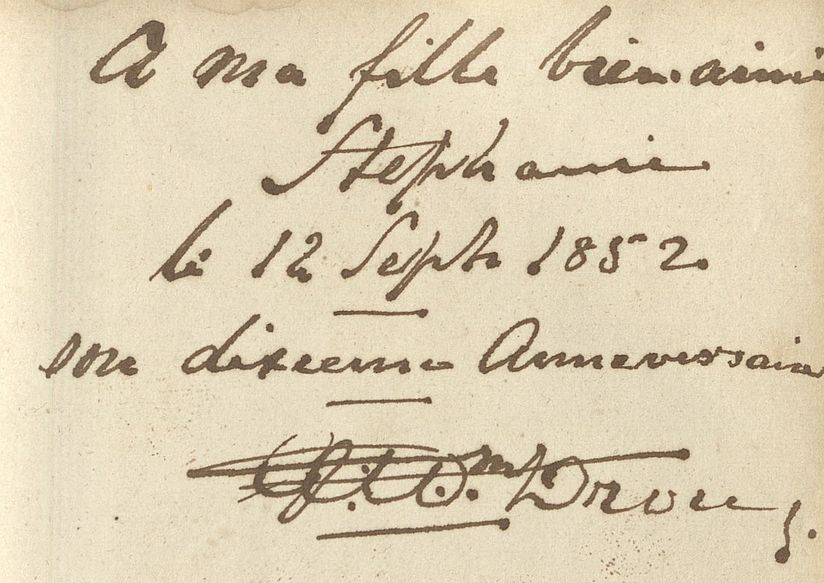 A ma fille bien-aimé
Stephanie
le 12 Septe 1852.
son dixieme Anneverssaire
Drou